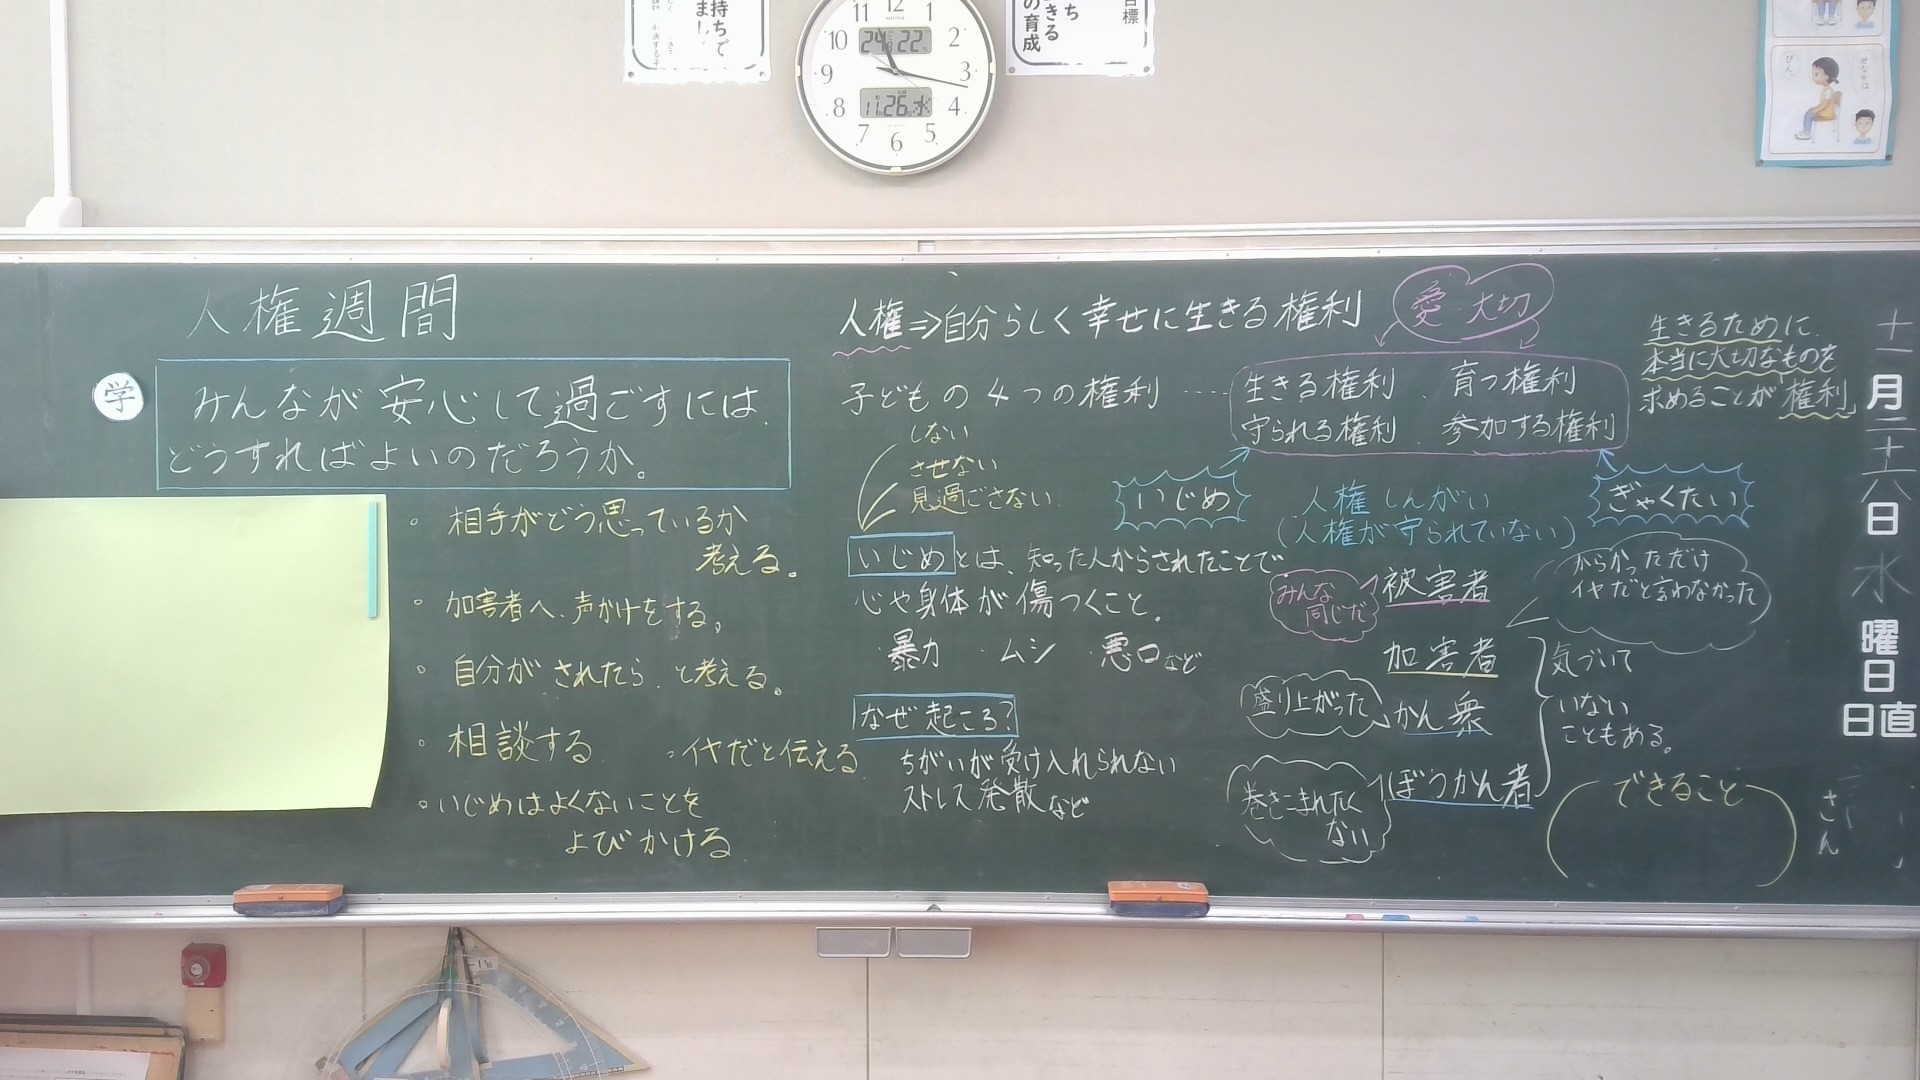 持ちで
まし
目標
きる
の育成
12
1
2
3
4
5
6
7
8
9
10
11
24
22
11 26 水
ぴん
せなかは
人権週間
学
みんなが安心して過ごすには、
どうすればよいのだろうか。
・相手がどう思っているか
考える。
・加害者へ、声かけをする。
・自分がされたら、と考える。
・相談する
・イヤだと伝える
・いじめはよくないことを
よびかける
人権⇒自分らしく幸せに生きる権利
愛 大切
子どもの4つの権利……
生きる権利、育つ権利
守られる権利、参加する権利
しない
させない
見過ごさない
いじめ
人権しんがい
(人権が守られていない)
ぎゃくたい
いじめとは、知った人からされたことで
心や身体が傷つくこと。
・暴力 ・ムシ ・悪口など
なぜ起こる?
ちがいが受け入れられない
ストレス発散など
みんな
同じだ
被害者
からかっただけ
イヤだと言わなかった
加害者
盛り上がった
かん衆
巻きこまれたく
ない
ぼうかん者
気づいて
いない
こともある。
できること
生きるために、
本当に大切なものを
求めることが「権利」
十一月二十六日水曜日
日直
さん